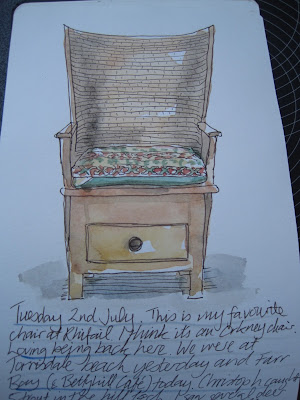 Tuesday 2nd July. This is my favourite
chair at Rhifail I think its an Orkney chair.
Loving being back here. We were at
Torrisdale beach yesterday and Farr
Bay (& Bettyhill Café) today. Christoph caught
trout in the hill loch. Saw